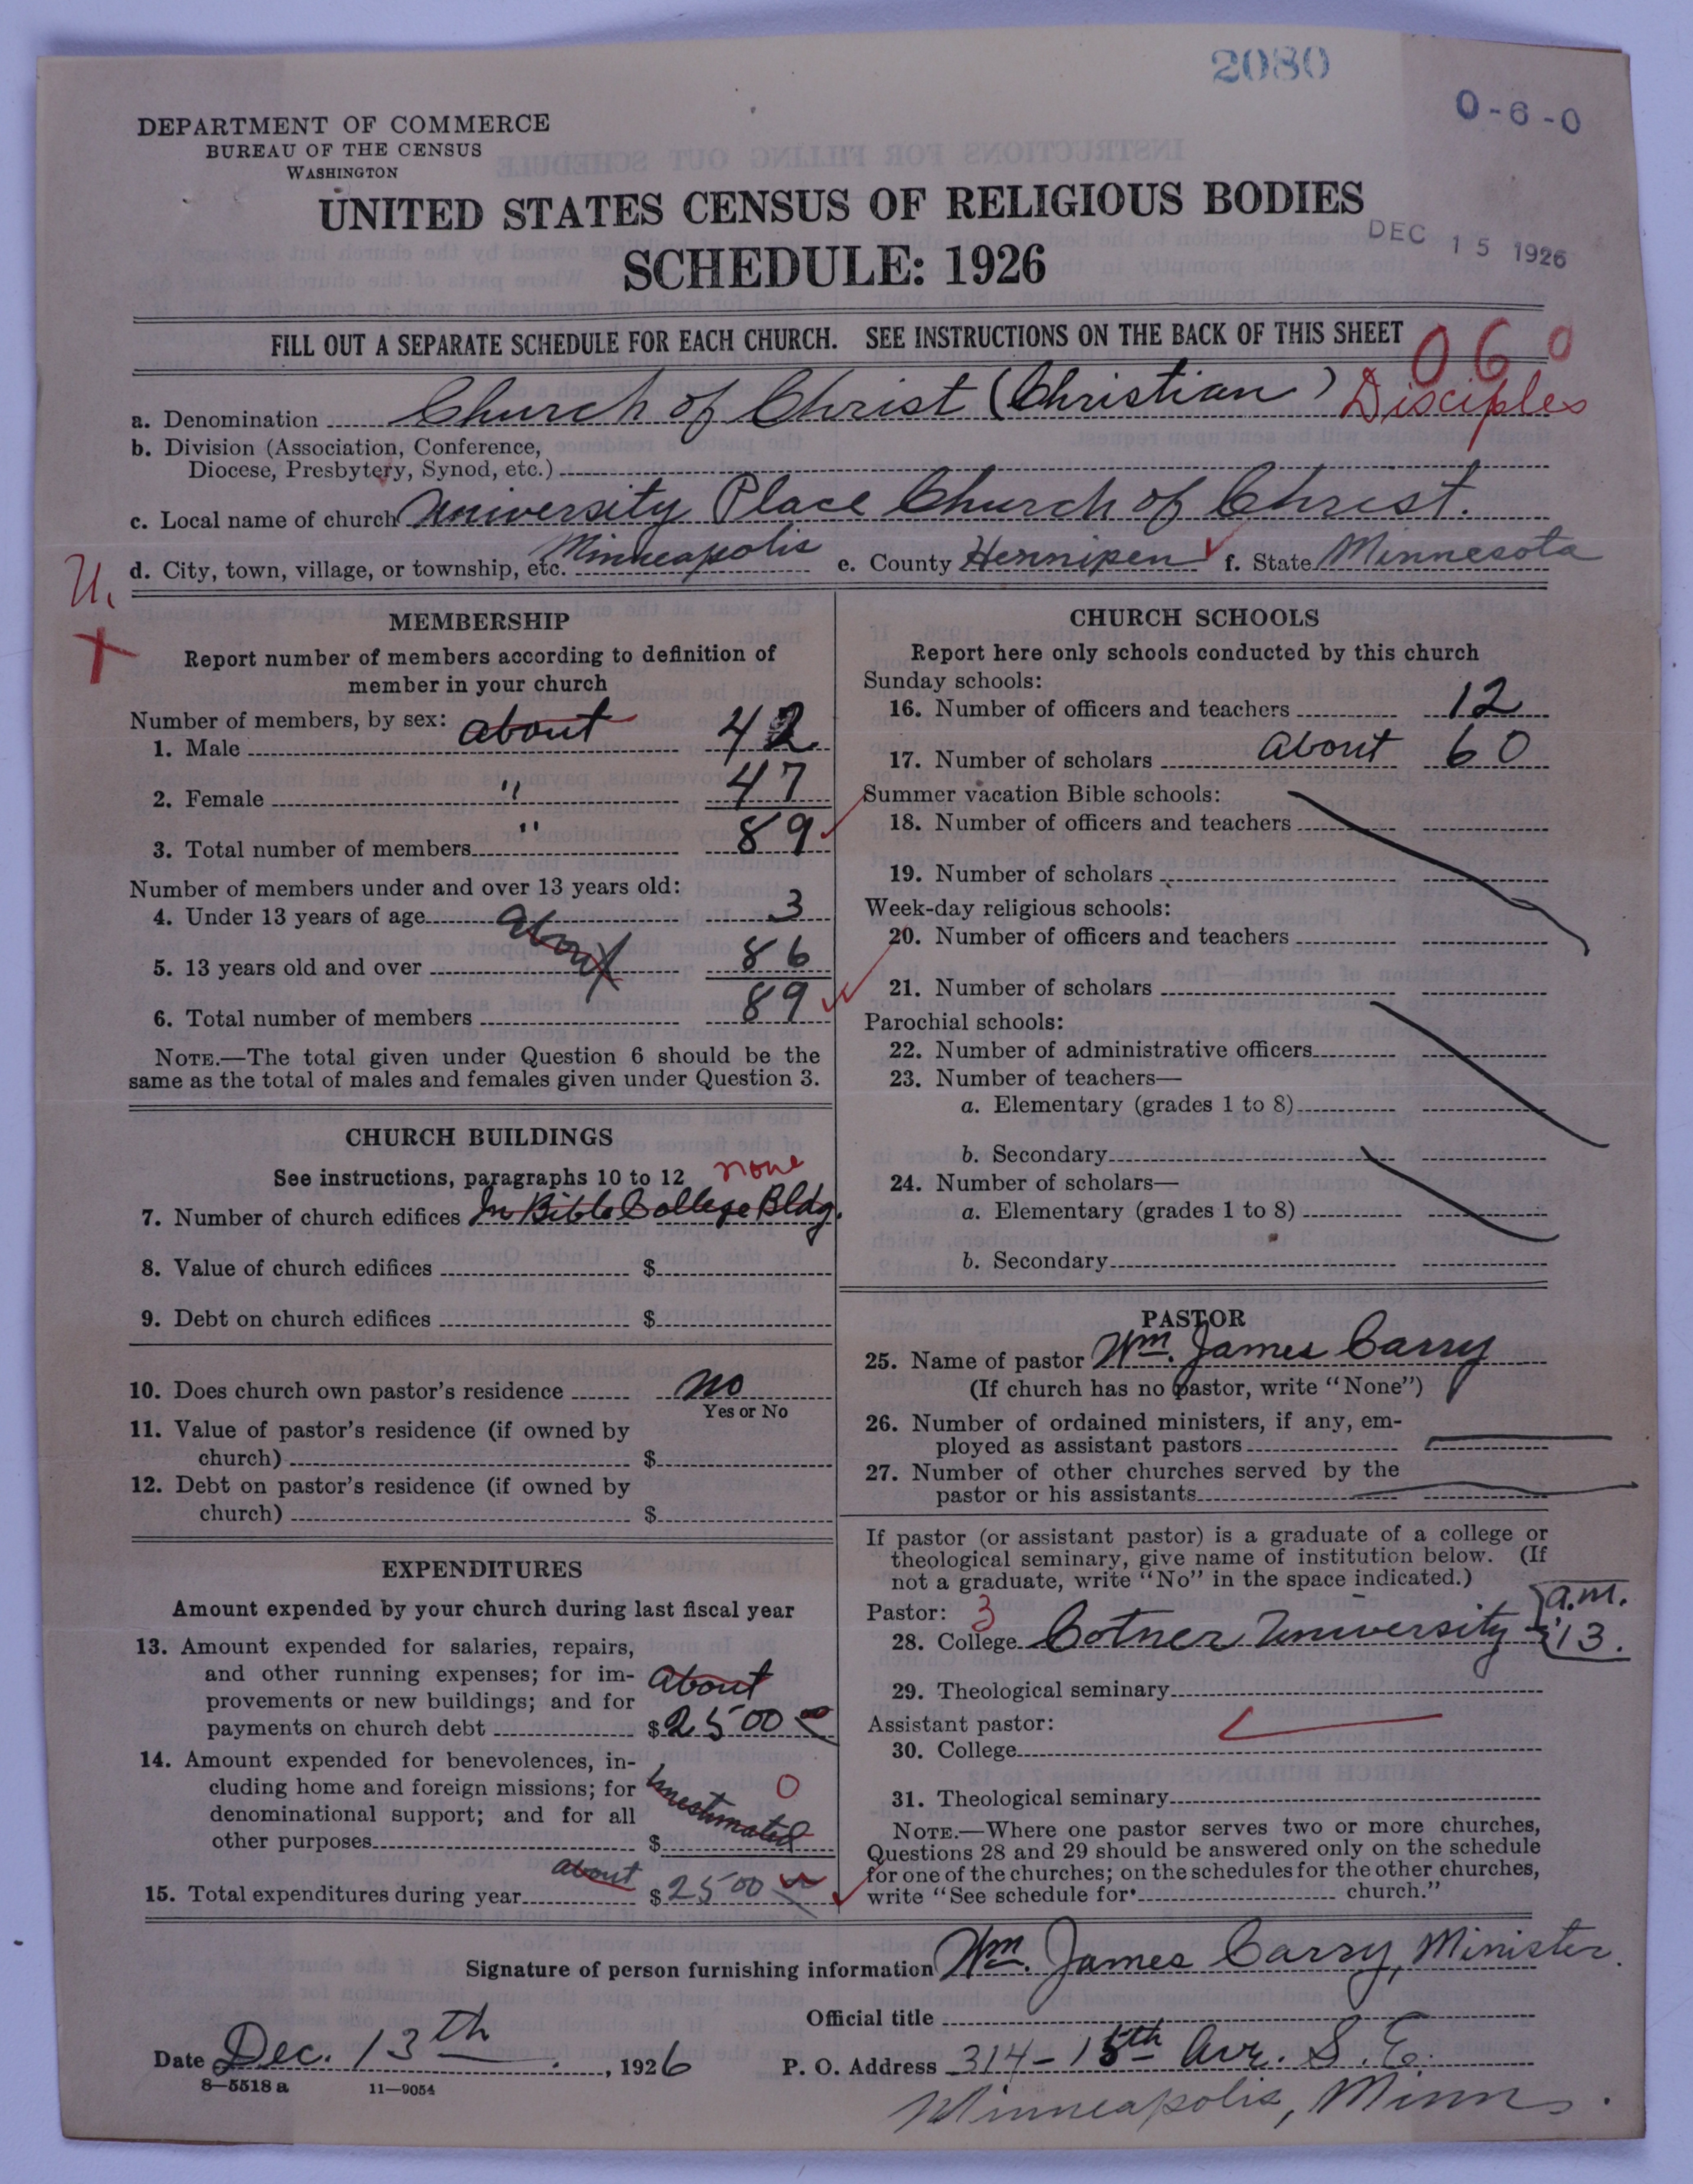 2080
0-6-0
DEPARTMENT OF COMMERCE
BUREAU OF THE CENSUS
WASHINGTON
UNITED STATES CENSUS OF RELIGIOUS BODIES
SCHEDULE: 1926
DEC 15 1926
FILL OUT A SEPARATE SCHEDULE FOR EACH CHURCH. SEE INSTRUCTIONS ON THE BACK OF THIS SHEET
060
a. Denomination Church of Christ (Christian) Disciples
b. Division (Association, Conference,
Diocese, Presbytery, Synod, etc.)
c. Local name of church University Place Church of Christ.
d. City, town, village, or township, etc. Minneapolis e. County Hennipen f. State Minnesota
U.
MEMBERSHIP
Report number of members according to definition of
member in your church
Number of members, by sex:
1. Male about 42
2. Female " 47
3. Total number of members " 89
Number of members under and over 13 years old:
4. Under 13 years of age about 3
5. 13 years old and over 86
6. Total number of members 89
NOTE.—The total given under Question 6 should be the
same as the total of males and females given under Question 3.
CHURCH BUILDINGS
See instructions, paragraphs 10 to 12 none
7. Number of church edifices In Bible College Bldg.
8. Value of church edifices $
9. Debt on church edifices $
10. Does church own pastor's residence no
Yes or No
11. Value of pastor's residence (if owned by
church) $
12. Debt on pastor's residence (if owned by
church) $
EXPENDITURES
Amount expended by your church during last fiscal year
13. Amount expended for salaries, repairs,
and other running expenses; for im-
provements or new buildings; and for
payments on church debt about $2500 00
14. Amount expended for benevolences, in-
cluding home and foreign missions; for
denominational support; and for all
other purposes $ unestimated 0
15. Total expenditures during year about $2500
CHURCH SCHOOLS
Report here only schools conducted by this church
Sunday schools:
16. Number of officers and teachers 12
17. Number of scholars about 60
Summer vacation Bible schools:
18. Number of officers and teachers
19. Number of scholars
Week-day religious schools:
20. Number of officers and teachers
21. Number of scholars
Parochial schools:
22. Number of administrative officers
23. Number of teachers—
a. Elementary (grades 1 to 8)
b. Secondary
24. Number of scholars—
a. Elementary (grades 1 to 8)
b. Secondary
PASTOR
25. Name of pastor Wm. James Carry
(If church has no pastor, write "None")
26. Number of ordained ministers, if any, em-
ployed as assistant pastors
27. Number of other churches served by the
pastor or his assistants
If pastor (or assistant pastor) is a graduate of a college or
theological seminary, give name of institution below. (If
not a graduate, write "No" in the space indicated.)
Pastor: 3
28. College Cotner University a.m. '13.
29. Theological seminary
Assistant pastor:
30. College
31. Theological seminary
NOTE.—Where one pastor serves two or more churches,
Questions 28 and 29 should be answered only on the schedule
for one of the churches; on the schedules for the other churches,
write "See schedule for church."
Signature of person furnishing information Wm. James Carry, Minister.
Official title
Date Dec. 13th, 1926 P. O. Address 314-15th Ave. S. E.
8—5518 a 11—9054
Minneapolis, Minn.